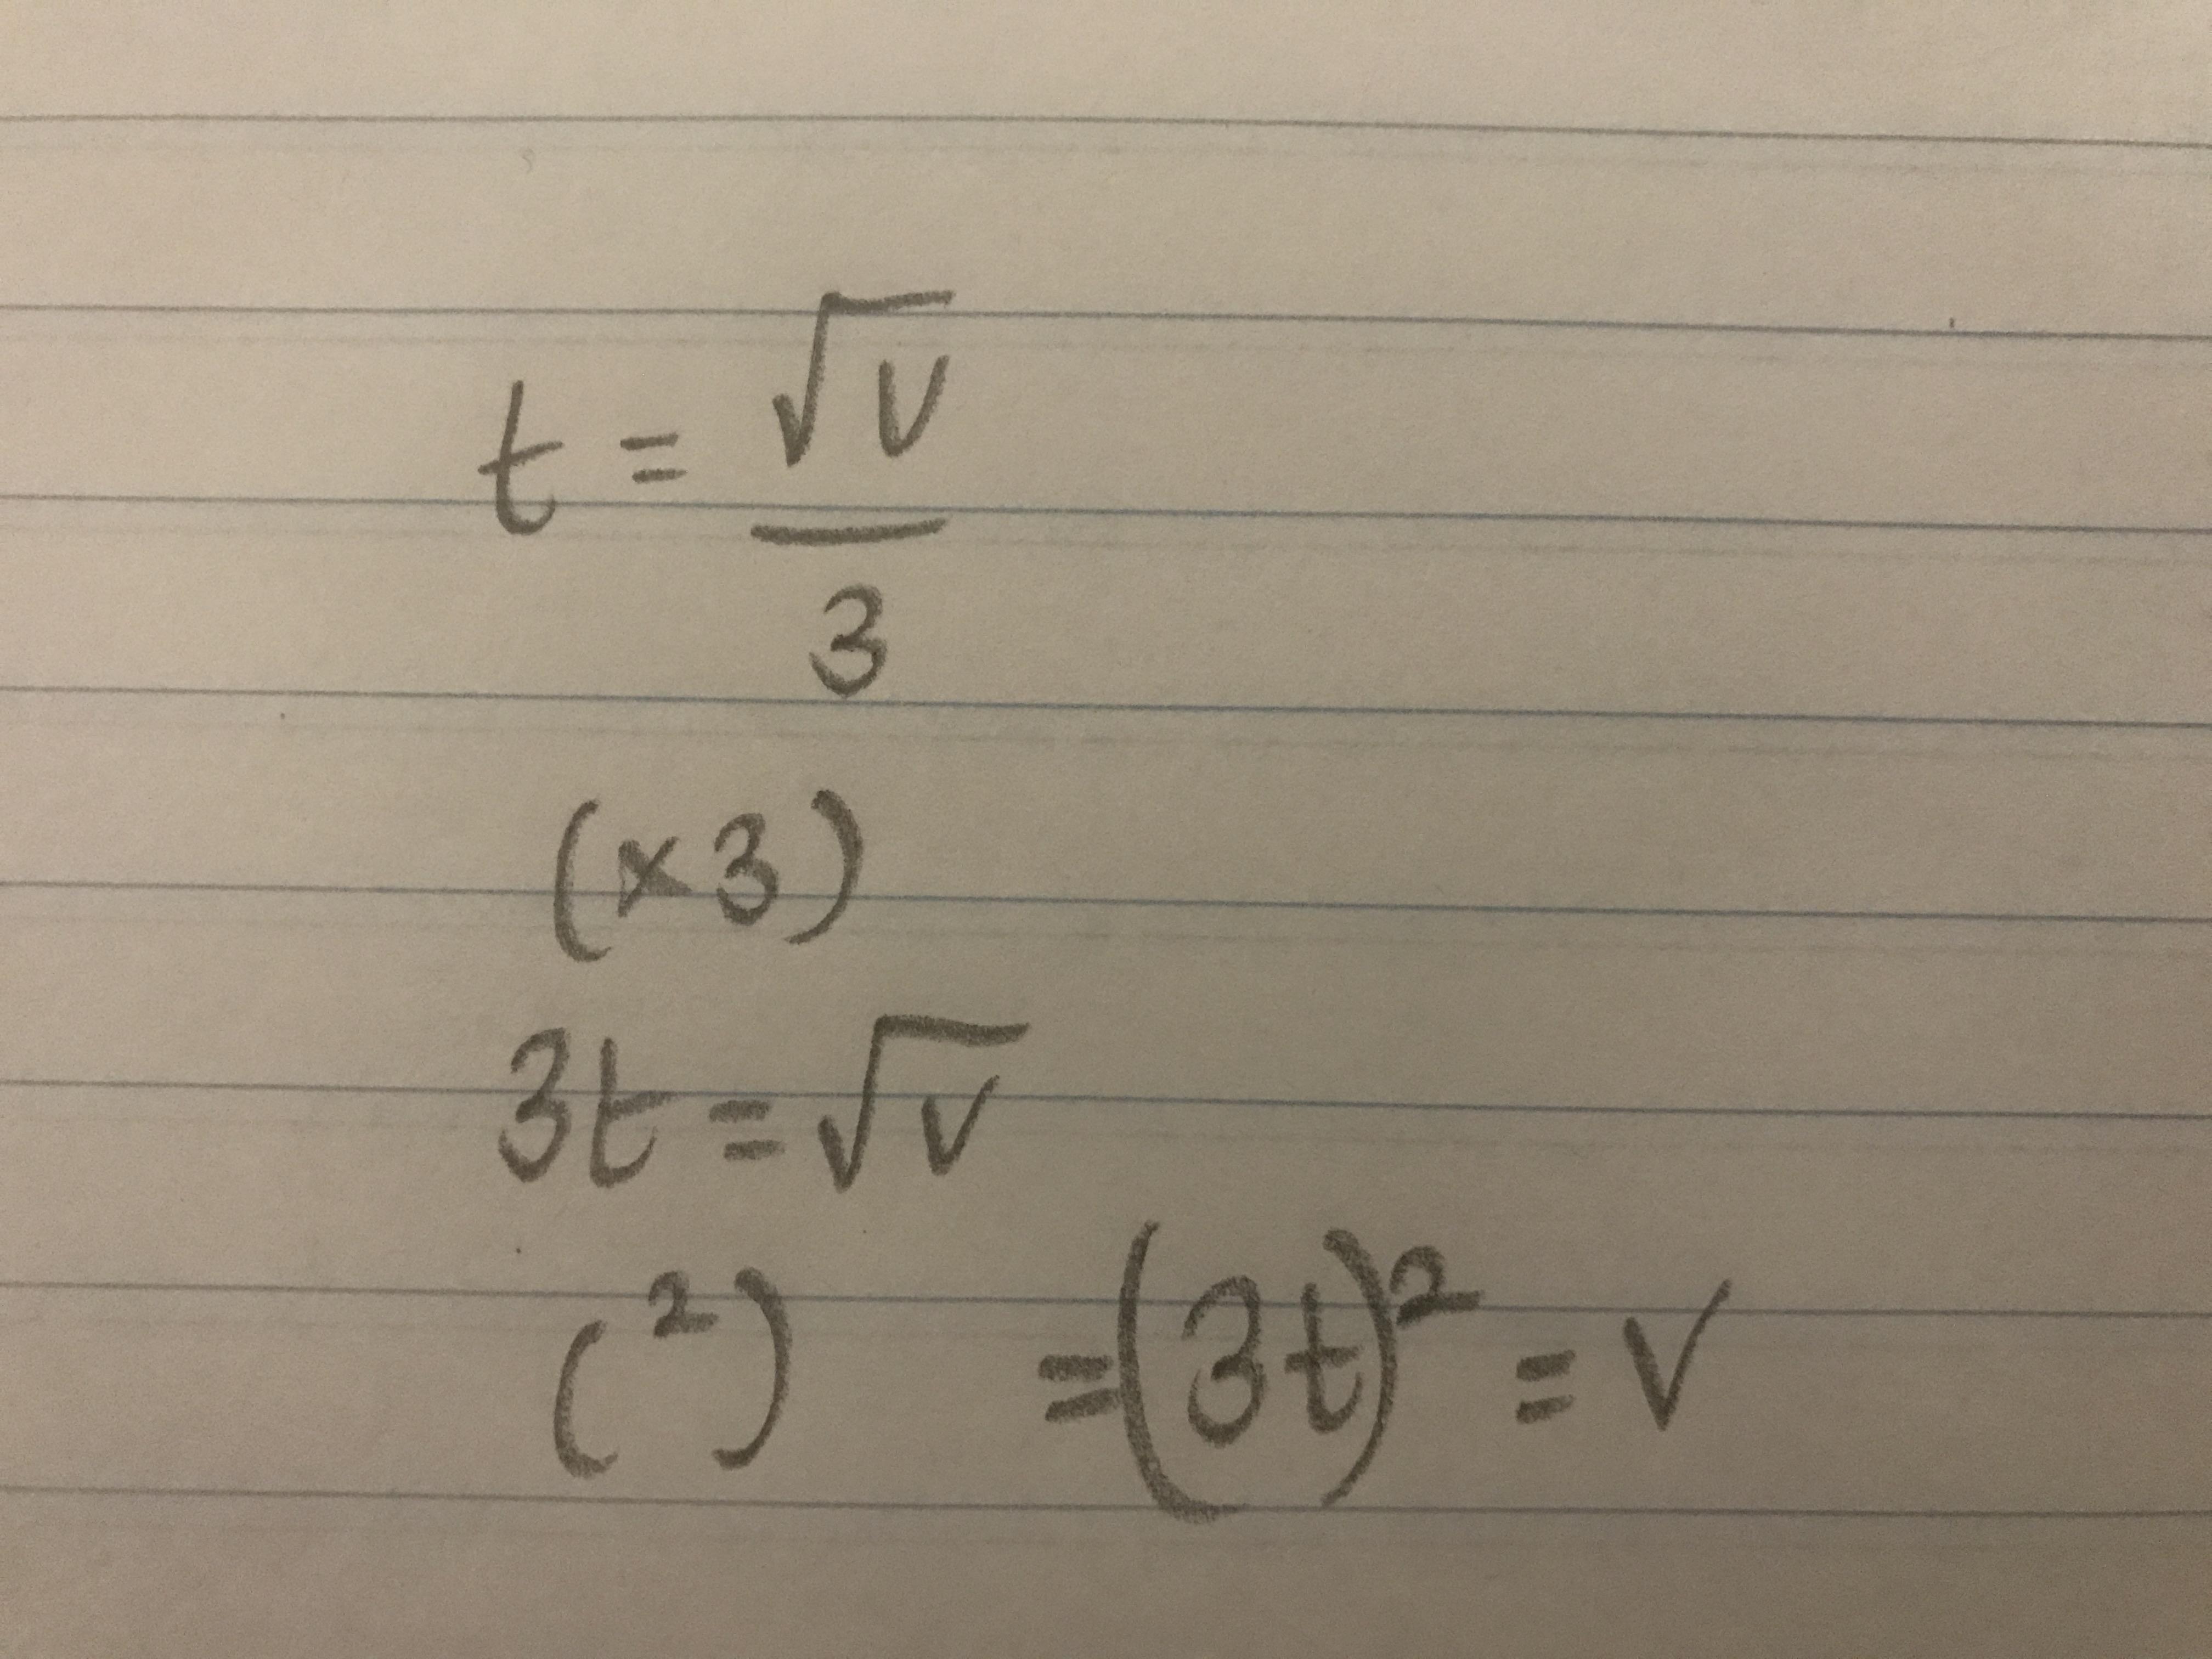 t = √v
3
(×3)
3t = √v
(²) = (3t)² = v